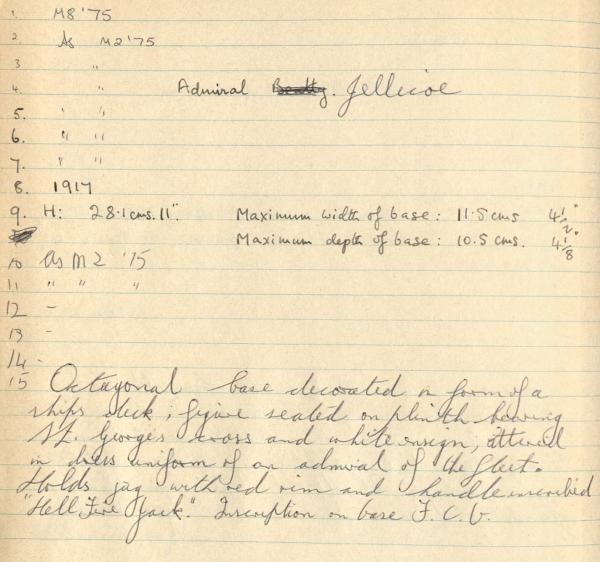 1. M8 '75
2. As M2 '75
3 "
4. " Admiral Beatty. Jellicoe
5. " "
6. " "
7. " "
8. 1917
9. H: 28.1 cms. 11". Maximum width of base: 11.5 cms 4 1/2".
Maximum depth of base: 10.5 cms. 4 1/8
10 As M2 '75
11 " " "
12 -
13 -
14 -
15 Octagonal base decorated in form of a
ships deck; figure seated on plinth bearing
St. Georges cross and white ensign; attired
in dress uniform of an admiral of the fleet.
Holds jug with red rim and handle inscribed
"Hell Fire Jack". Inscription on base F. C. G.